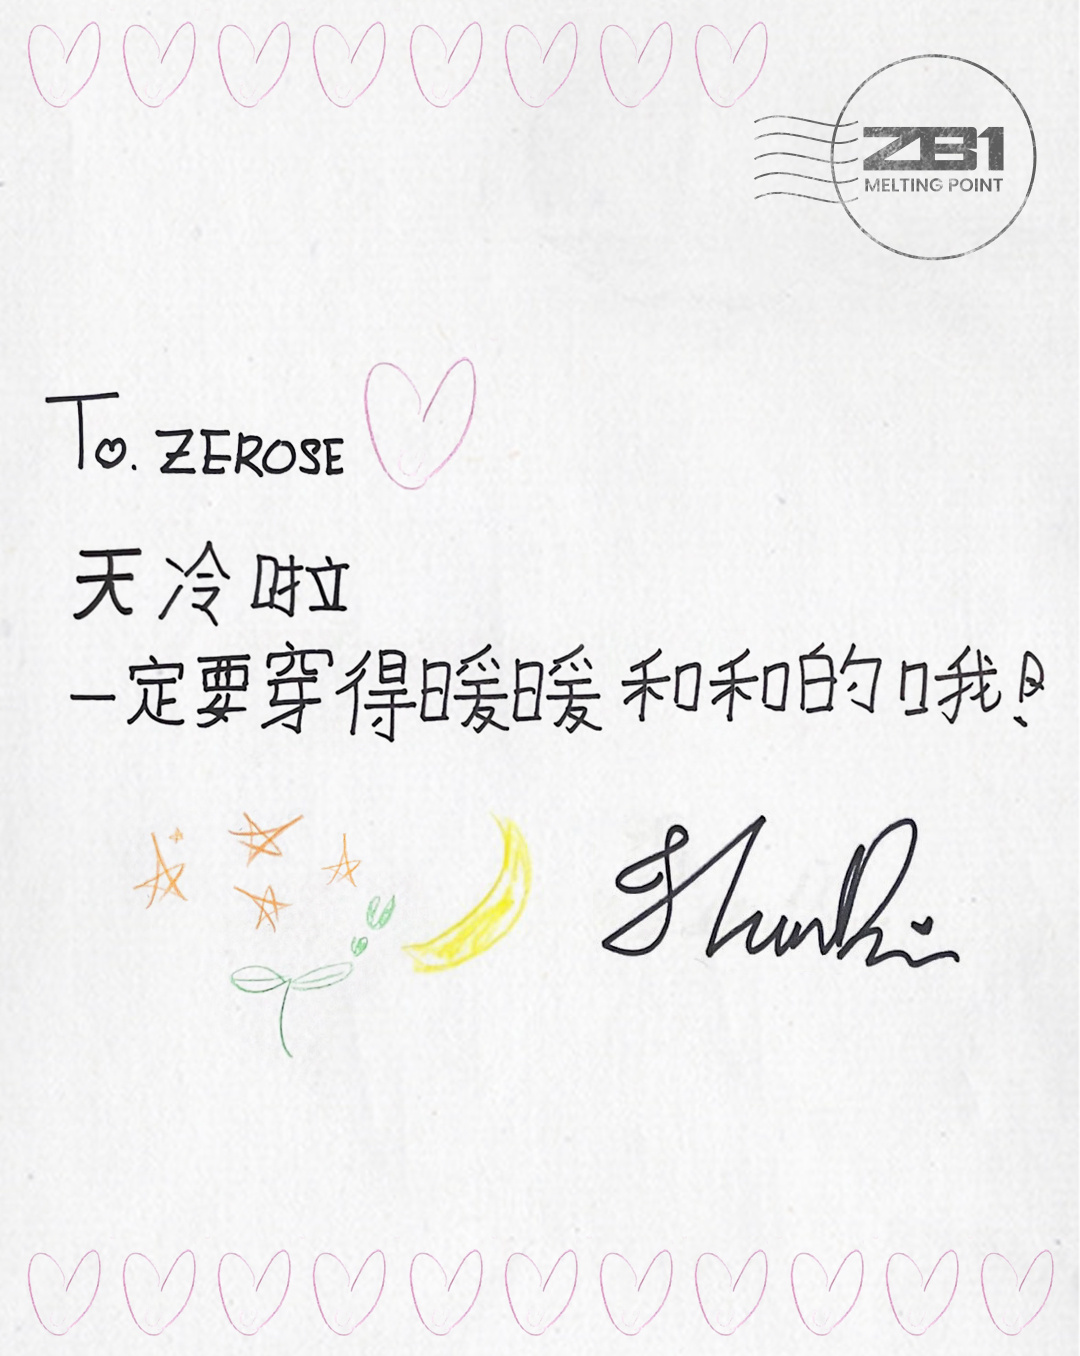 ZB1
MELTING POINT
To. ZEROSE
天冷啦
一定要穿得暖暖和和的哦!